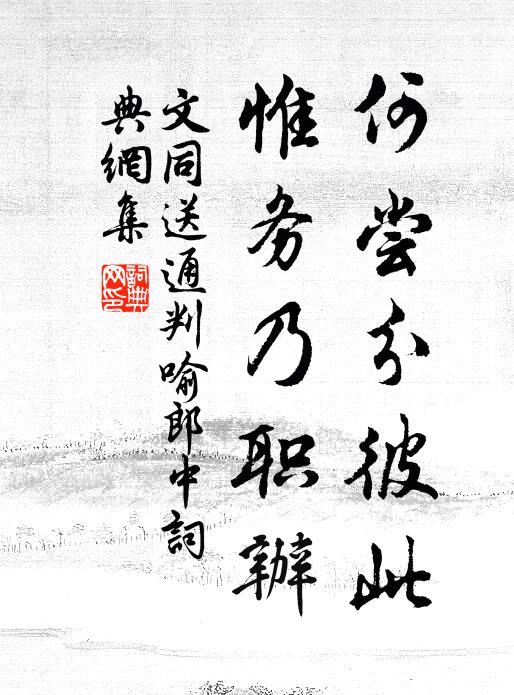 何尝分彼此
惟务乃职辦
文同送通判喻郎中詞
典網集
詞典網印